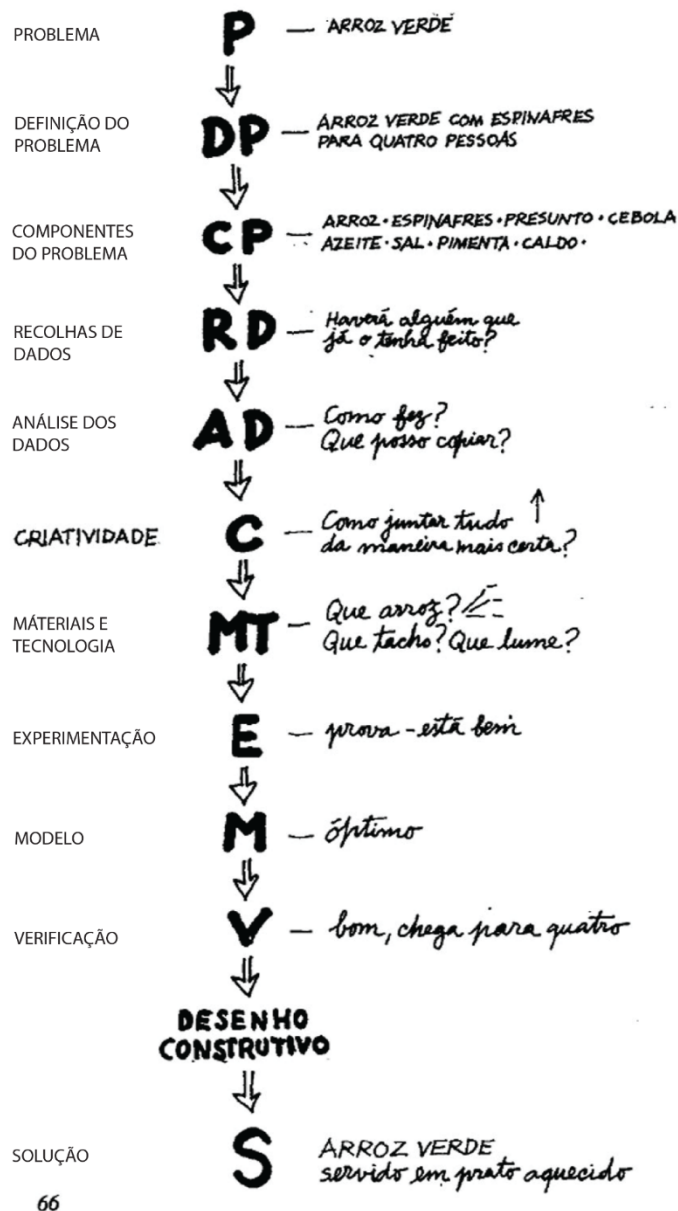 PROBLEMA
P — ARROZ VERDE
DEFINIÇÃO DO
PROBLEMA
DP — ARROZ VERDE COM ESPINAFRES
PARA QUATRO PESSOAS
COMPONENTES
DO PROBLEMA
CP — ARROZ · ESPINAFRES · PRESUNTO · CEBOLA
AZEITE · SAL · PIMENTA · CALDO ·
RECOLHAS DE
DADOS
RD — Haverá alguém que
já o tenha feito?
ANÁLISE DOS
DADOS
AD — Como fez?
Que posso copiar?
CRIATIVIDADE
C — Como juntar tudo
da maneira mais certa?
MÁTERIAIS E
TECNOLOGIA
MT — Que arroz?
Que tacho? Que lume?
EXPERIMENTAÇÃO
E — prova - está bem
MODELO
M — óptimo
VERIFICAÇÃO
V — bom, chega para quatro
DESENHO
CONSTRUTIVO
SOLUÇÃO
S ARROZ VERDE
servido em prato aquecido
66